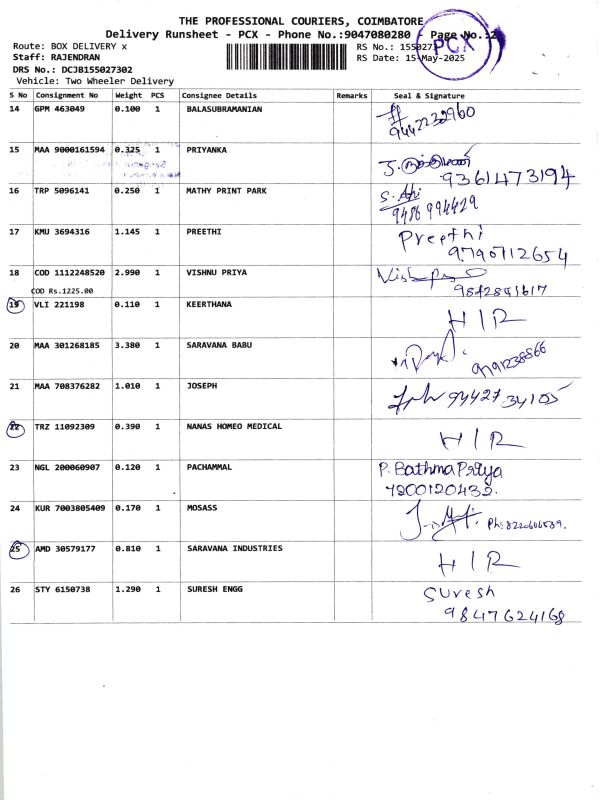 THE PROFESSIONAL COURIERS, COIMBATORE
Delivery Runsheet - PCX - Phone No.:9047080280 - Page No.:2
Route: BOX DELIVERY x
RS No.: 155027
PCX
Staff: RAJENDRAN
RS Date: 15-May-2025
DRS No.: DCJB155027302
Vehicle: Two Wheeler Delivery
S No Consignment No Weight PCS Consignee Details Remarks Seal & Signature
14 GPM 463049 0.100 1 BALASUBRAMANIAN
9442232960
15 MAA 9000161594 0.325 1 PRIYANKA
9361473194
16 TRP 5096141 0.250 1 MATHY PRINT PARK
9486 994429
17 KMU 3694316 1.145 1 PREETHI Preethi
9790712654
18 COD 1112248520 2.990 1 VISHNU PRIYA
COD Rs.1225.00
19 VLI 221198 0.110 1 KEERTHANA H I R
20 MAA 301268185 3.380 1 SARAVANA BABU
9791238866
21 MAA 708376282 1.010 1 JOSEPH 94427 34105
22 TRZ 11092309 0.390 1 NANAS HOMEO MEDICAL H I R
23 NGL 200060907 0.120 1 PACHAMMAL P. Bathma Priya
7200120432.
24 KUR 7003805409 0.170 1 MOSASS
25 AMD 30579177 0.810 1 SARAVANA INDUSTRIES H I R
26 STY 6150738 1.290 1 SURESH ENGG Suresh
9847624168